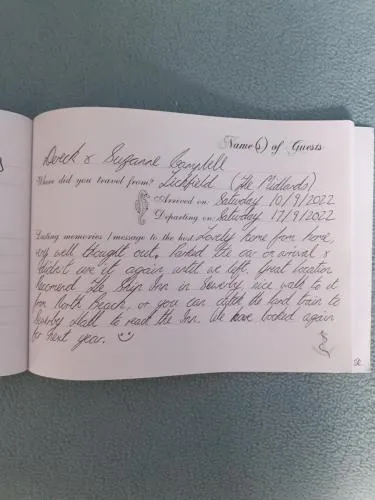 Name(s) of Guests
Dereck & Suzanne Campbell
Where did you travel from? Lichfield (The Midlands)
Arrived on: Saturday 10/9/2022
Departing on: Saturday 17/9/2022
Lasting memories / message to the host: Lovely home from home,
very well thought out. Parked the car on arrival &
didn't use it again until we left. Great location
Recomend The Ship Inn in Sewerby, nice walk to it
from North Beach, or you can catch the land train to
Sewerby walk to reach the Inn. We have booked again
for next year.